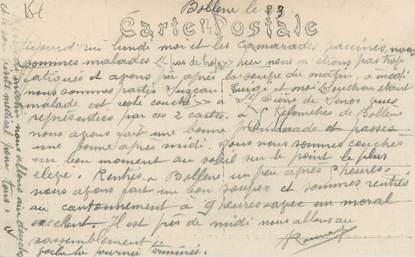 Bollène le
Carte Postale
lundi moi et les camarades vaccinés, nous
sommes malades pas de nous n'étions pas trop
fatigués et avons pu après la soupe du matin, à midi
nous sommes partis et moi étant
malade est resté couché à St
représentées par ces 2 cartes. à Kilomètres de Bollène
nous avons fait une bonne promenade et passé
une bonne après midi. nous nous sommes couchés
un bon moment au soleil sur le point le plus
élevé. Rentrés à Bollène un peu après heures.
nous avons fait un bon souper et sommes rentrés
au cantonnement à 9 heures avec un moral
excellent. Il est près de midi nous allons au
rassemblement
voilà la journée terminée.
nous allons au
visite médical pour tous.